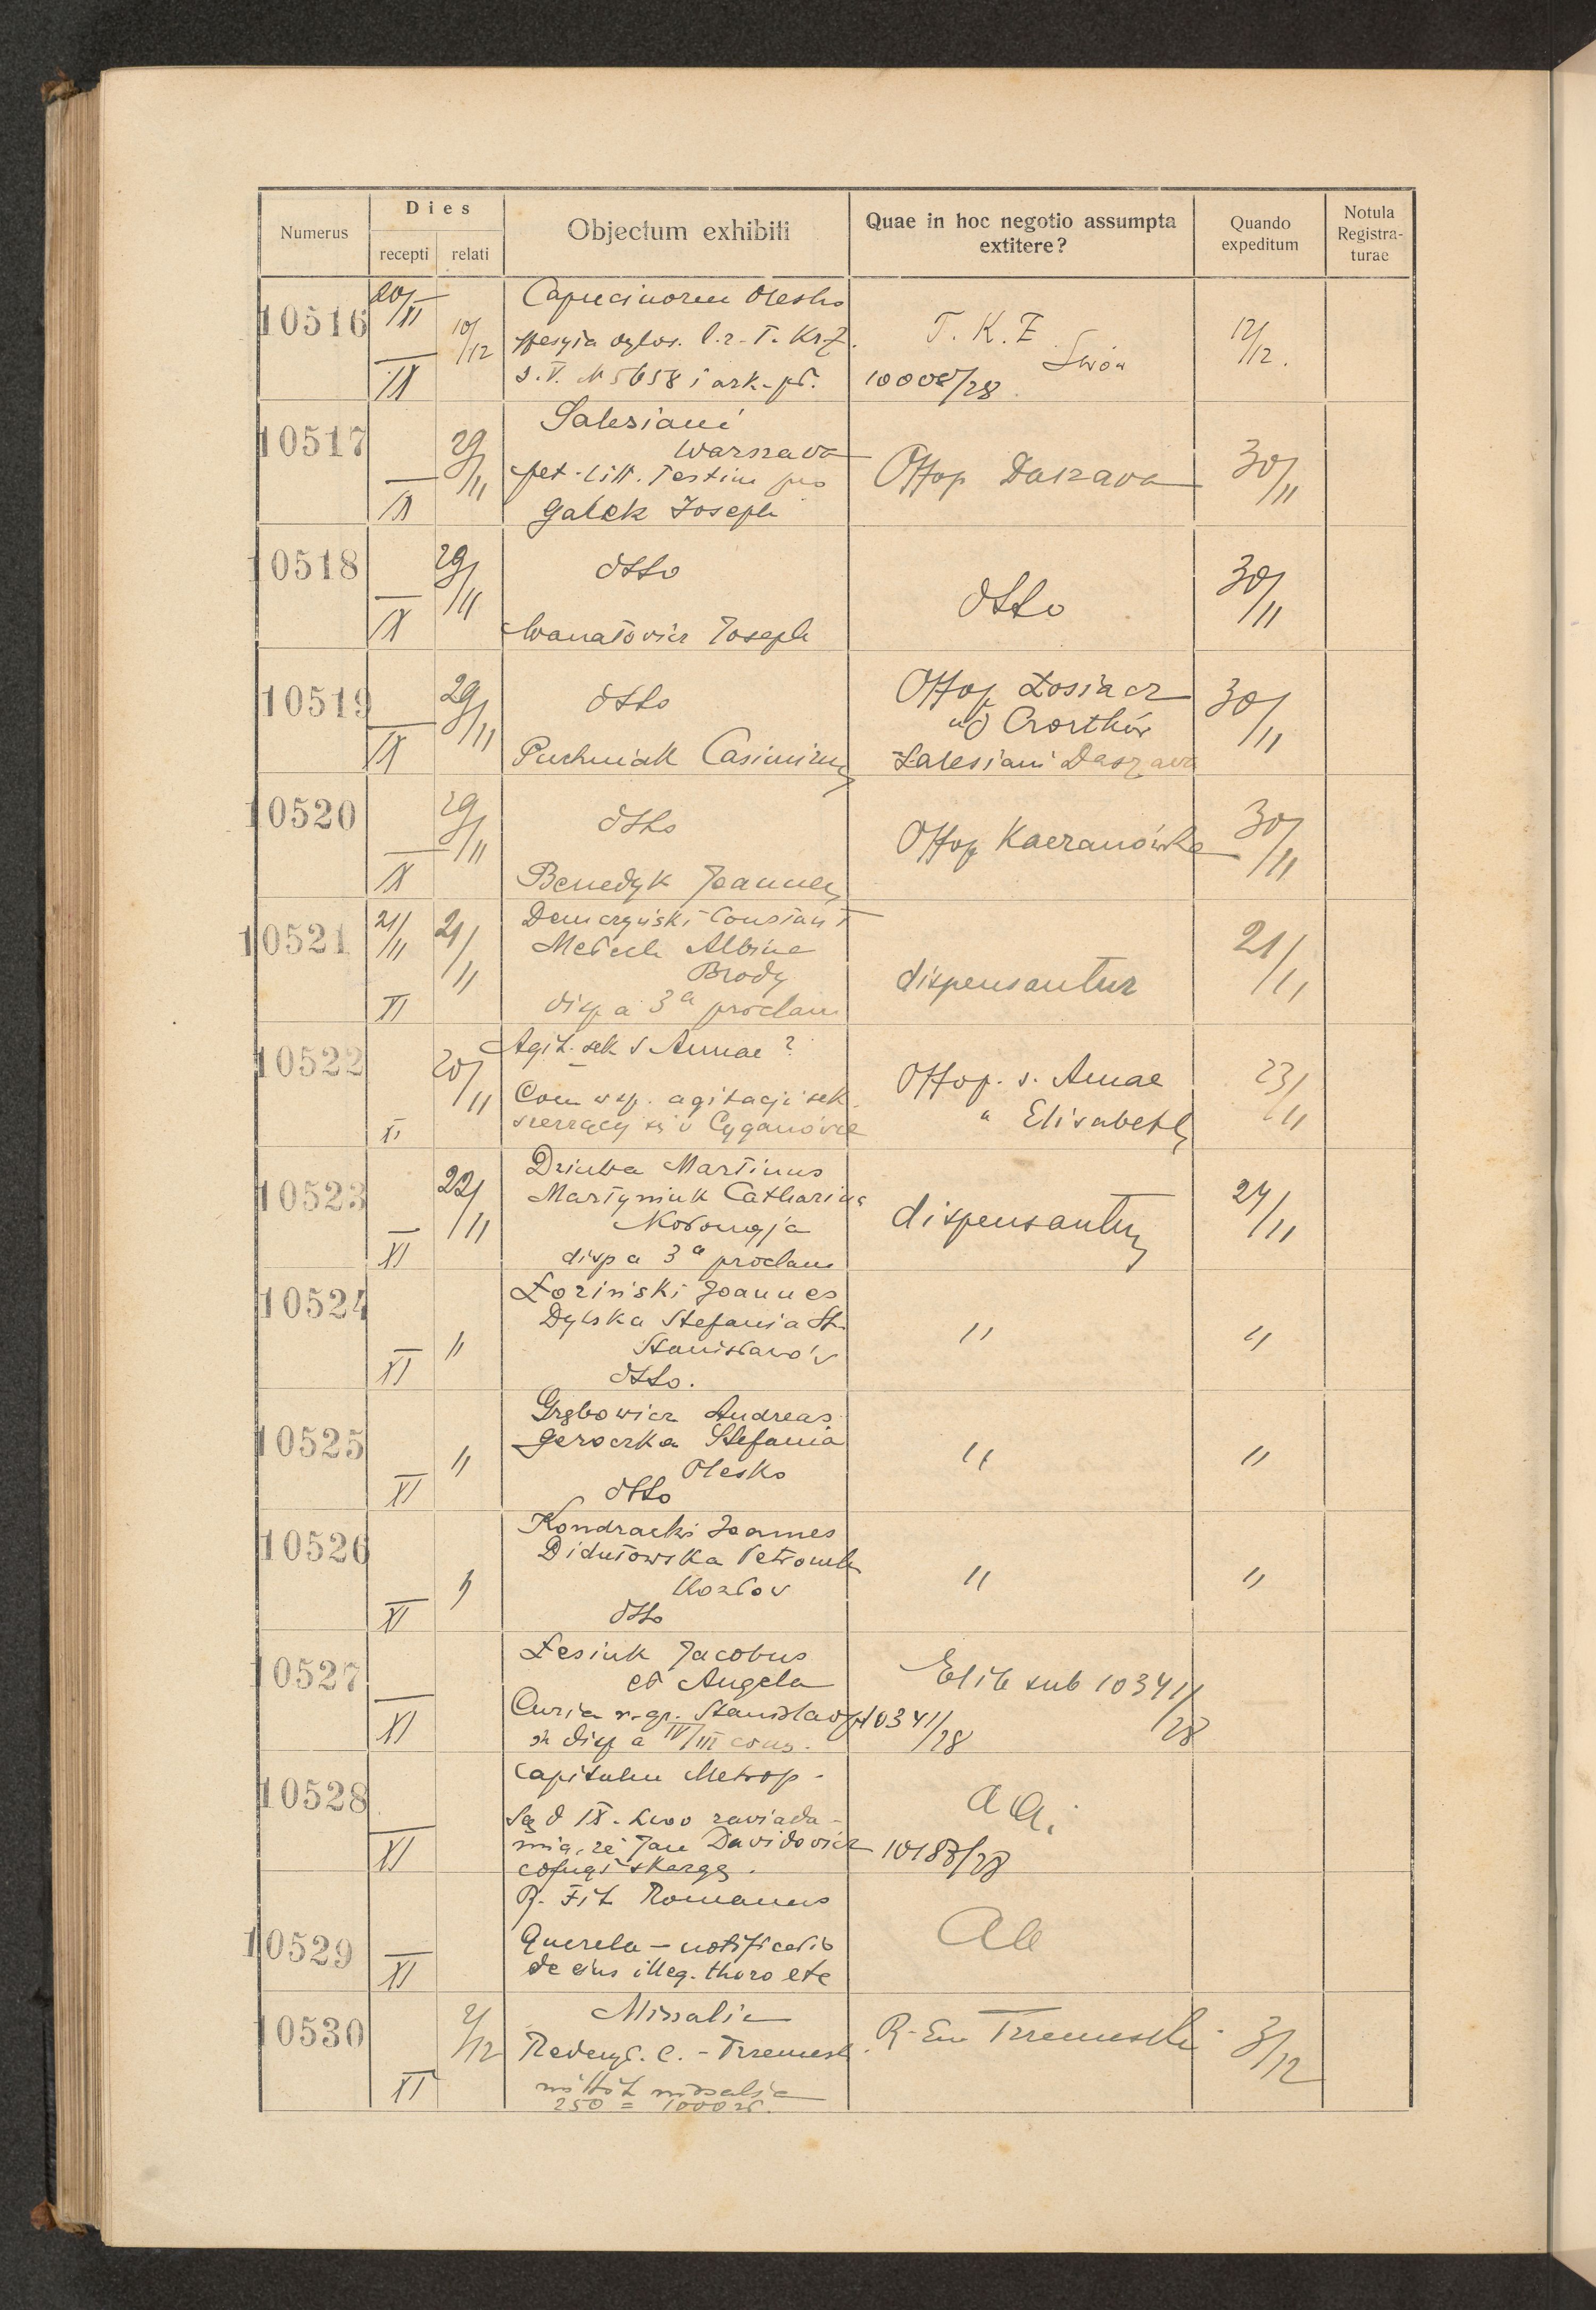 Numerus
Dies
recepti
relati
Objectum exhibiti
Quae in hoc negotio assumpta
extitere?
Quando
expeditum
Notula
Registra-
turae
10516
20/XI
IX
10/12
Capucinorum Olesko
T. Kr. Z.
i ark.
T. K. Z
Lwów
12/12.
10517
IX
29/11
Salesiani
Warszawa
pet. litt. Testim pro
Galek Joseph
Offop Daszawa
30/11
10518
IX
29/11
dtto
Joseph
dtto
30/11
10519
IX
29/11
dtto
Puchniak Casimirus
Offop Łosiacz
ad Czortków
Salesiani Daszawa
30/11
10520
IX
29/11
dtto
Benedyk Joannes
Offop Kaczanówka
30/11
10521
21/11
XI
21/11
Demczyński Constant
Albina
Brody
disp a 3a proclam
dispensantur
21/11
10522
XI
20/11
Agit. sek s Annae?
Com wsp. agitacji sek.
szerzącej się w Cyganówce
Offop. s. Annae
" Elisabeth
23/11
10523
XI
22/11
Dziuba Martinus
Martyniuk Catharina
disp a 3a proclam
dispensantur
24/11
10524
XI
"
Łoziński Joannes
Dylska Stefania
Stanisławów
dtto.
"
"
10525
XI
"
Grębowicz Andreas
Geroczka Stefania
Olesko
dtto
"
"
10526
XI
"
Kondracki Joannes
Didułowska Petronela
Kozłów
dtto
"
"
10527
XI
Łesiuk Jacobus
et Angela
Curia r. gr. Stanislaop
disp a IV/III cons.
10341/28
sub 10341/28
10528
XI
Capitulum Metrop.
Sąd IX. Lwów zawiada-
mia, że Jan Davidowicz
cofnął skargę.
aa.
10529
XI
R. Fit Romanus
Querela - notificatio
de eius illeg. thoro etc
10530
XI
2/12
Missalia
mittit missalia
250 = 1000 zł.
3/12